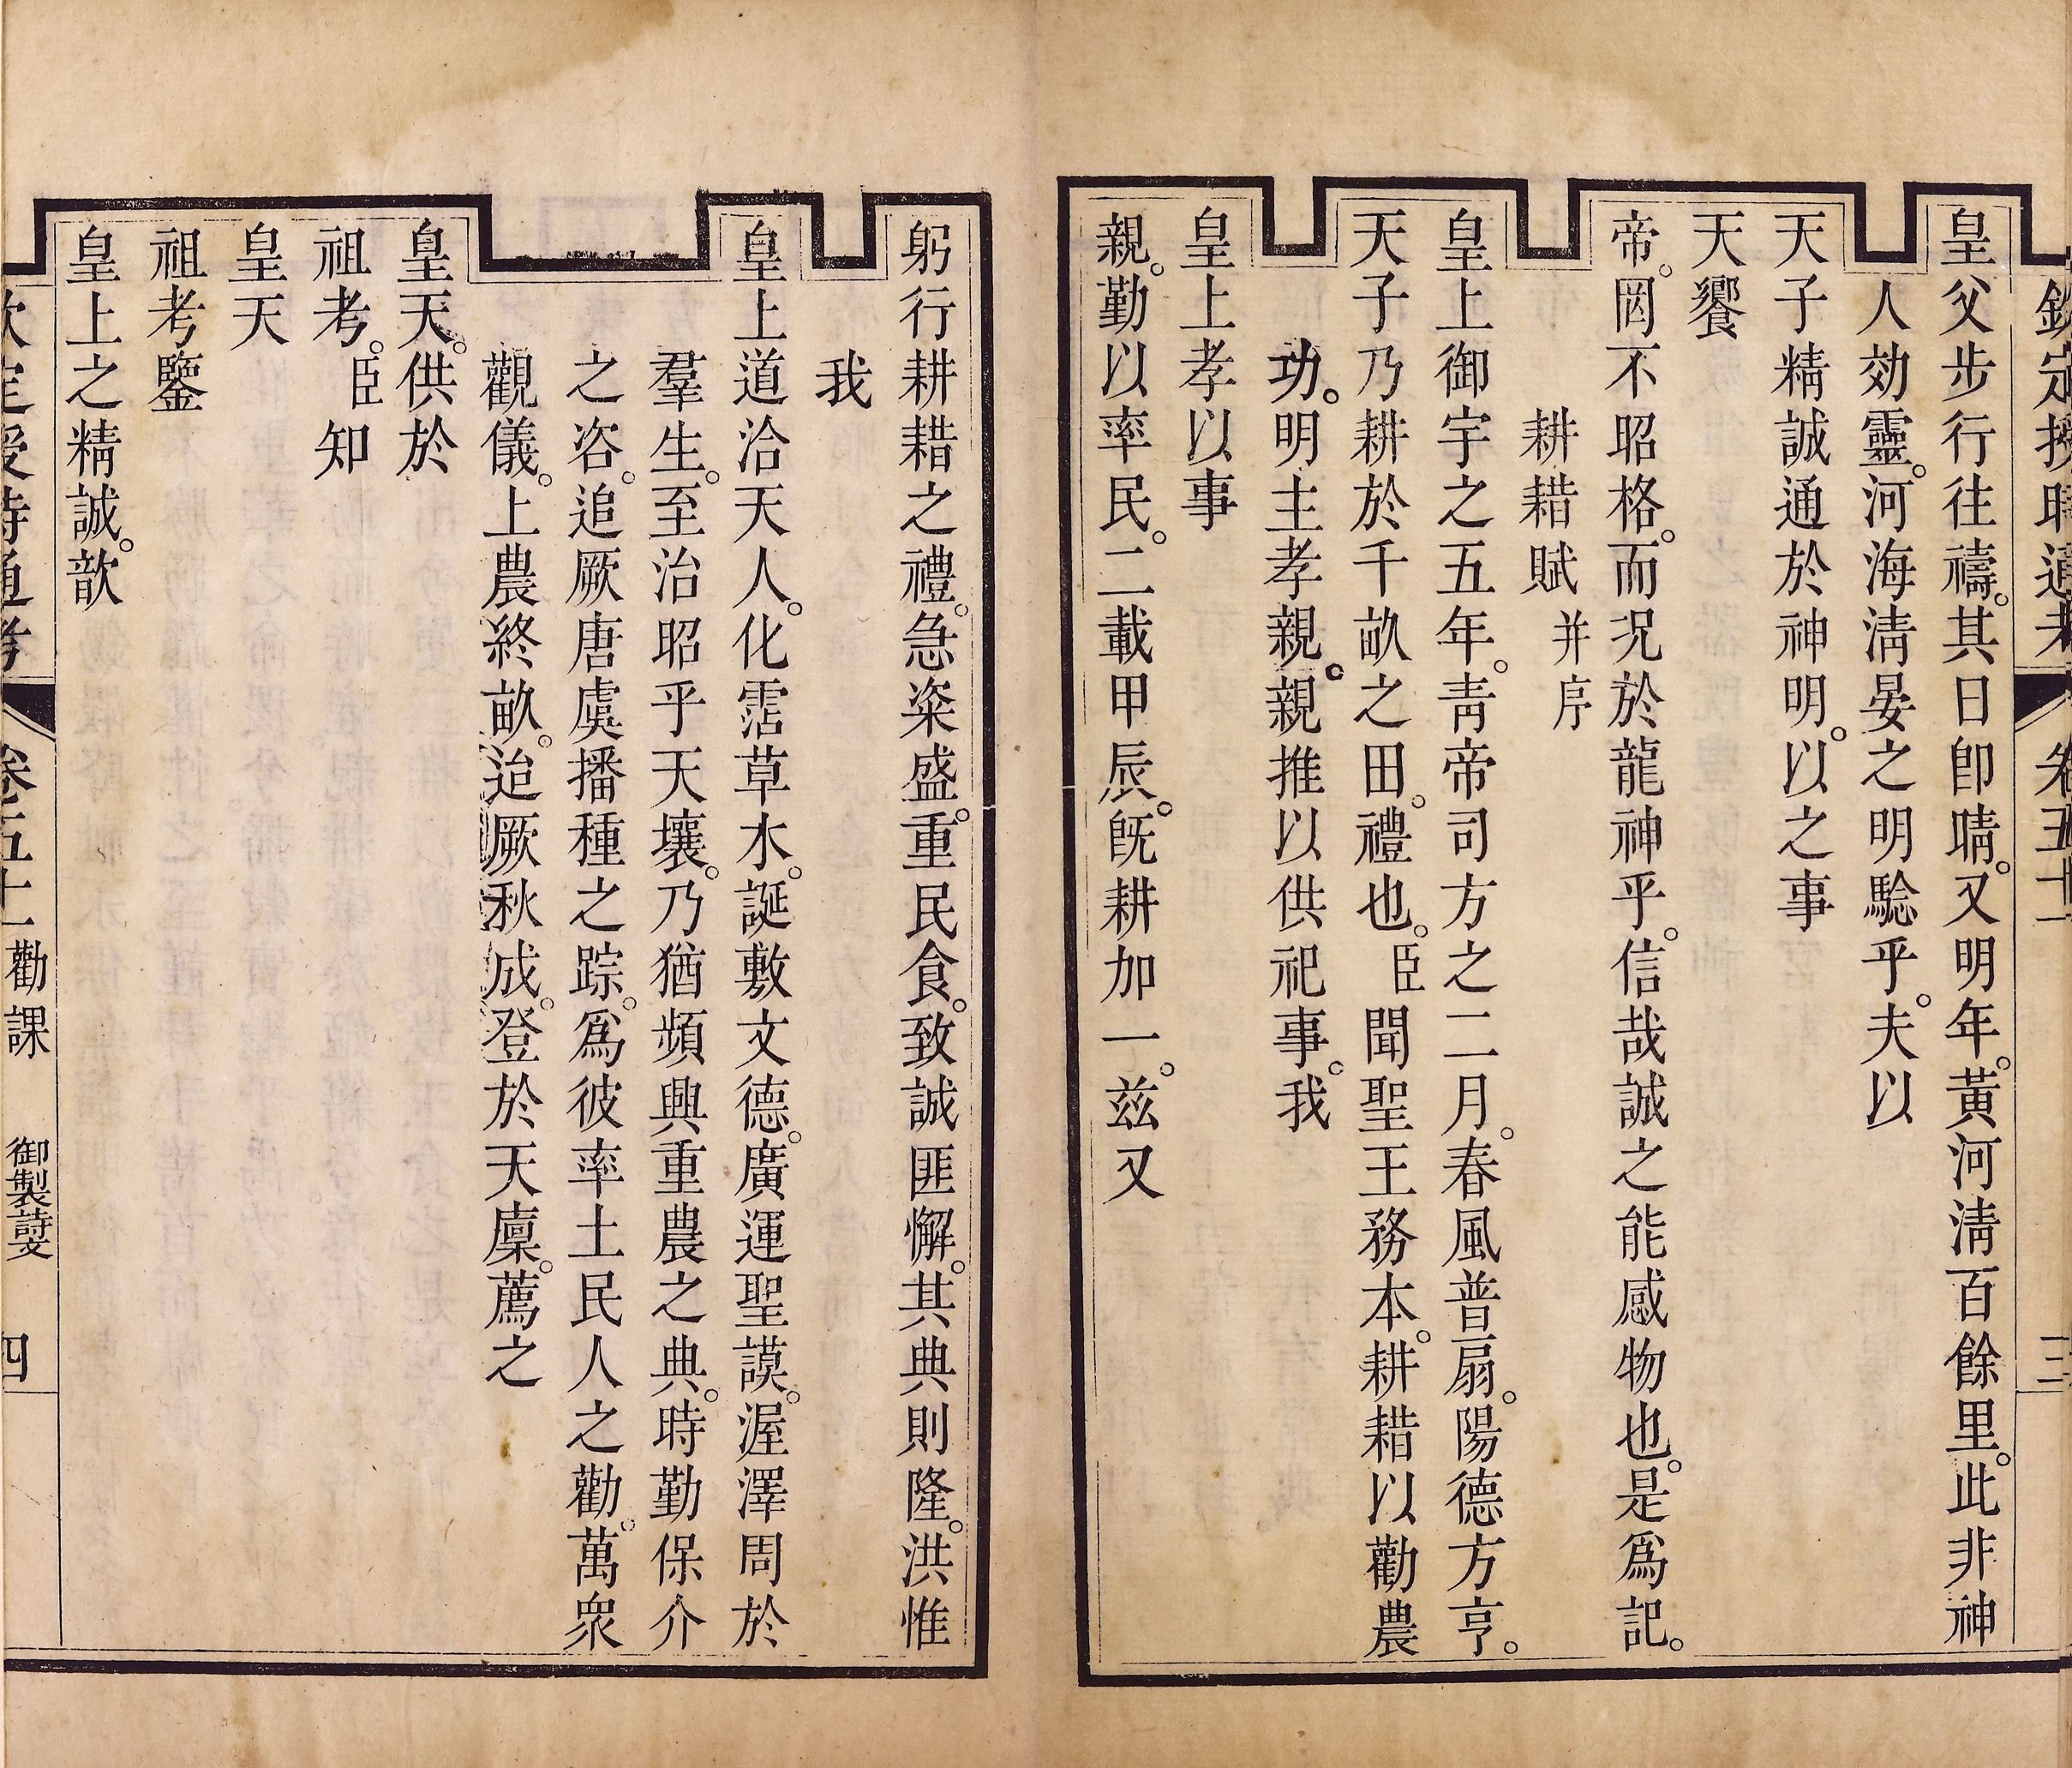 欽定授時通考 卷五十一 三
皇父步行往禱。其日卽晴。又明年。黃河淸百餘里。此非神
人効靈。河海淸晏之明騐乎。夫以
天子精誠通於神明。以之事
天饗
帝。罔不昭格。而况於龍神乎。信哉誠之能感物也。是爲記。
耕耤賦 并序
皇上御宇之五年。靑帝司方之二月。春風普扇。陽德方亨。
天子乃耕於千畝之田。禮也。臣聞聖王務本。耕耤以勸農
功。明主孝親。親推以供祀事。我
皇上孝以事
親。勤以率民。二載甲辰。旣耕加一。兹又
躬行耕耤之禮。急粢盛。重民食。致誠匪懈。其典則隆。洪惟
我
皇上道洽天人。化霑草木。誕敷文德。廣運聖謨。渥澤周於
羣生。至治昭乎天壤。乃猶頻興重農之典。時勤保介
之咨。追厥唐虞播種之踪。爲彼率土民人之勸。萬衆
觀儀。上農終畝。迨厥秋成。登於天廩。薦之
皇天。供於
祖考。臣知
皇天
祖考鑒
皇上之精誠。歆
欽定授時通考 卷五十一 勸課 御製詩文 四